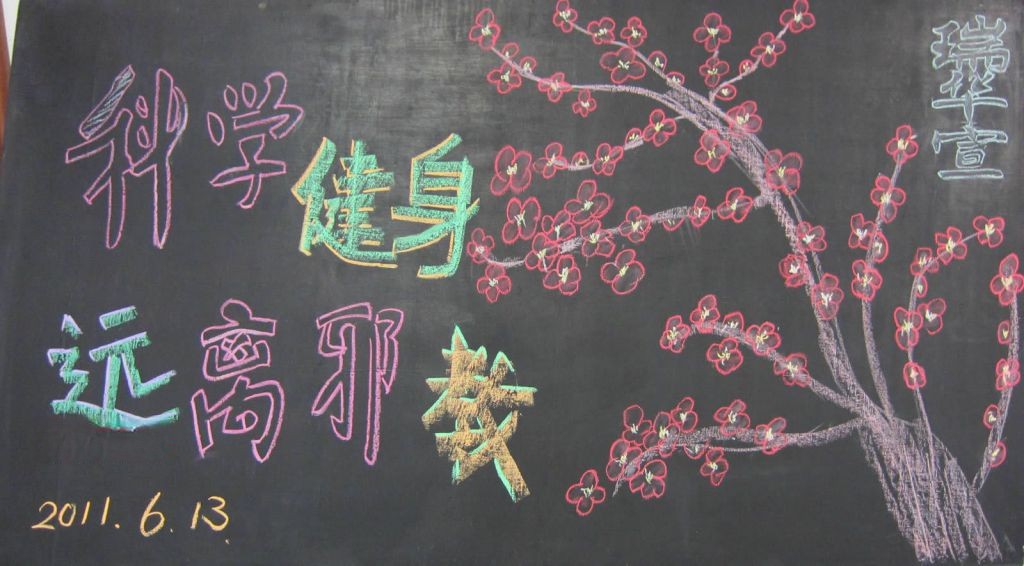 科学健身
远离邪教
2011.6.13.
瑞华宣